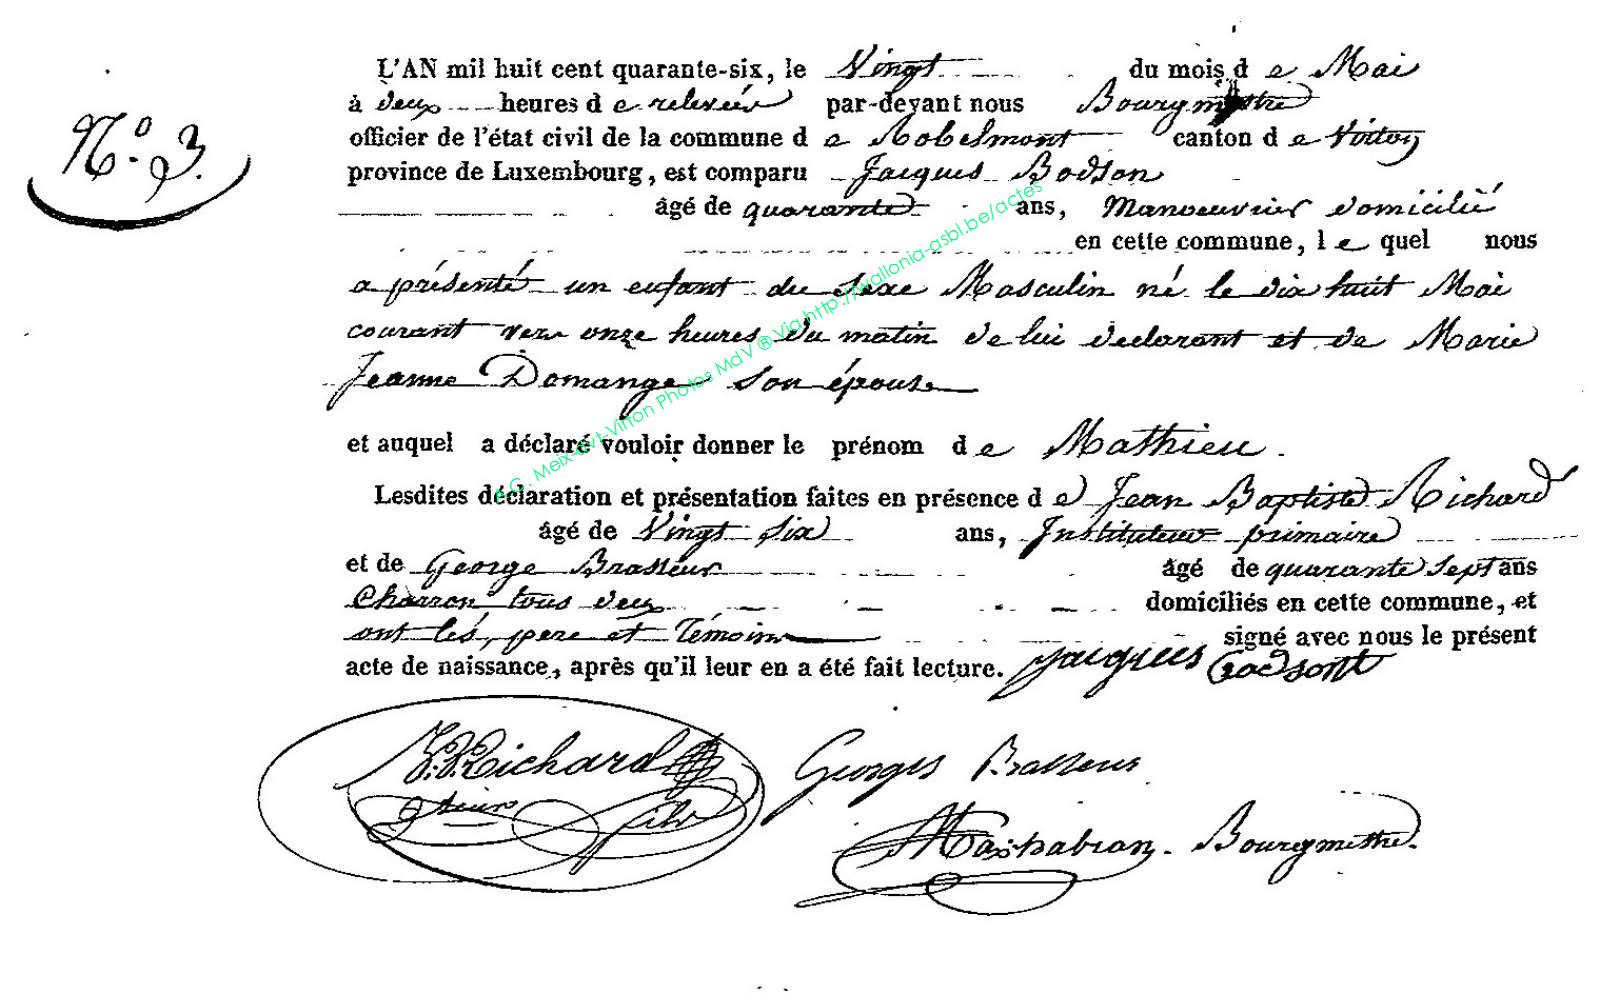 L'AN mil huit cent quarante-six, le Vingt du mois d e Mai
N.º 3.
à deux heures d e relevée par-devant nous Bourgmestre
officier de l'état civil de la commune d e Robelmont canton d e Virton
province de Luxembourg, est comparu Jacques Bodson
âgé de quarante ans, Manoeuvrier domicilié
en cette commune, l e quel nous
a présenté un enfant du sexe Masculin né le dix huit Mai
courant vers onze heures du matin de lui declarant et de Marie
Jeanne Domange son épouse
et auquel a déclaré vouloir donner le prénom d e Mathieu.
Lesdites déclaration et présentation faites en présence d e Jean Baptiste Richard
âgé de Vingt six ans, Instituteur primaire
et de George Brasseur âgé de quarante sept ans
Charron tous deux domiciliés en cette commune, et
ont lés, pere et Témoins signé avec nous le présent
acte de naissance, après qu'il leur en a été fait lecture. Jacques Bodson
J.B. Richard Georges Brasseur
fils
Bourgmestre.
A.C. Meix-dvt-Virton Photos MdV ® Via http://wallonia-asbl.be/actes